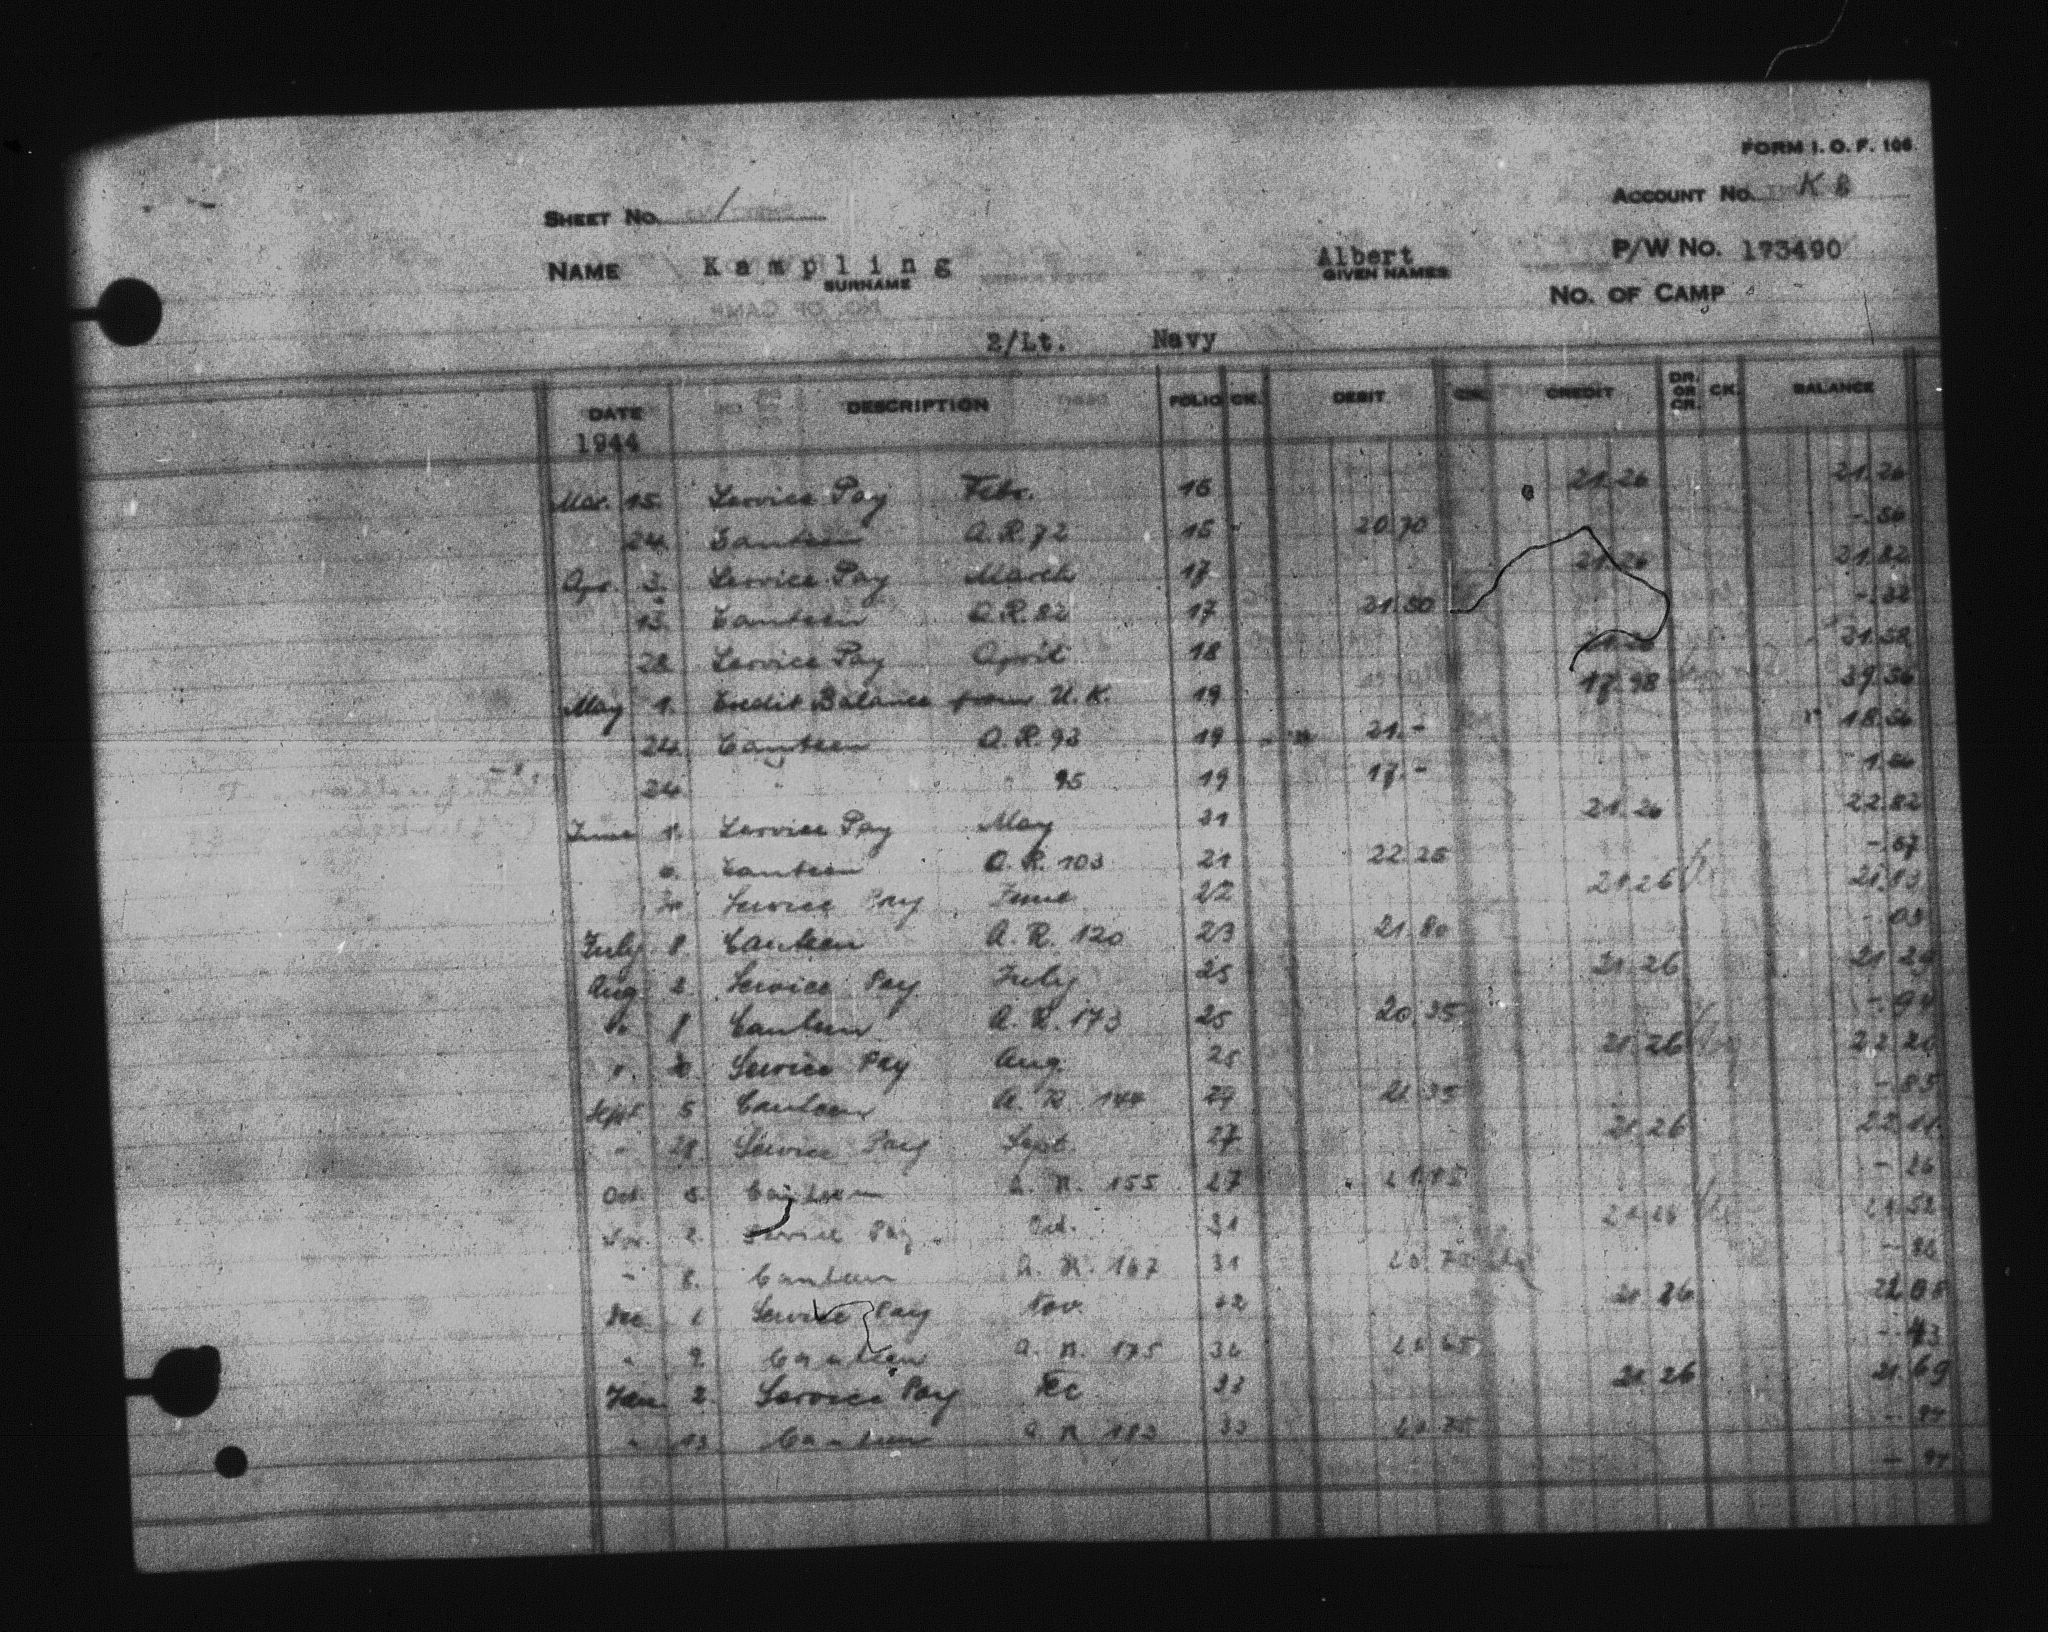 FORM I. O. F. 106
SHEET No. 1
ACCOUNT No. K 8
NAME Kampling Albert P/W No. 173490
SURNAME GIVEN NAMES
No. OF CAMP
2/Lt. Navy
DATE DESCRIPTION FOLIO CK. DEBIT CK. CREDIT DR. OR CR. CK. BALANCE
1944
Mar. 15. Service Pay Febr. 16 21.26 21.26
24. Canteen A.R. 72 15 20.70 -.56
Apr. 3. Service Pay March 17 21.26 21.82
13. Canteen A.R. 82 17 21.50 -.32
28. Service Pay April 18 21.26 21.58
May 1. Credit Balance from U.K. 19 17.98 39.56
24. Canteen A.R. 93 19 21.- 18.56
24. " " 95 19 17.- 1.56
June 1. Service Pay May 21 21.26 22.82
6. Canteen A.R. 103 21 22.25 -.57
Service Pay June 22 21.26
July 8. Canteen A.R. 120 23 21.80 -.03
Aug. 2. Service Pay July 25 21.26 21.29
" 8 Canteen A.R. 173 25 20.35 -.94
" Service Pay Aug. 25 21.26 22.20
Sept. 5 Canteen A.R. 144 27 21.35 -.85
" 28. Service Pay Sept. 27 21.26 22.11
Oct. 5. Canteen A.R. 155 27 21.85 -.26
Nov. 2. Service Pay Oct. 31 21.26 21.52
" 8. Canteen A.R. 167 31 20.73
Dec. 1 Service Pay Nov. 32 21.26 22.05
" 9 Canteen A.R. 175 -.43
Jan. 2. Service Pay Dec 33 21.26 21.69
" 13 Canteen A.R. 183 33